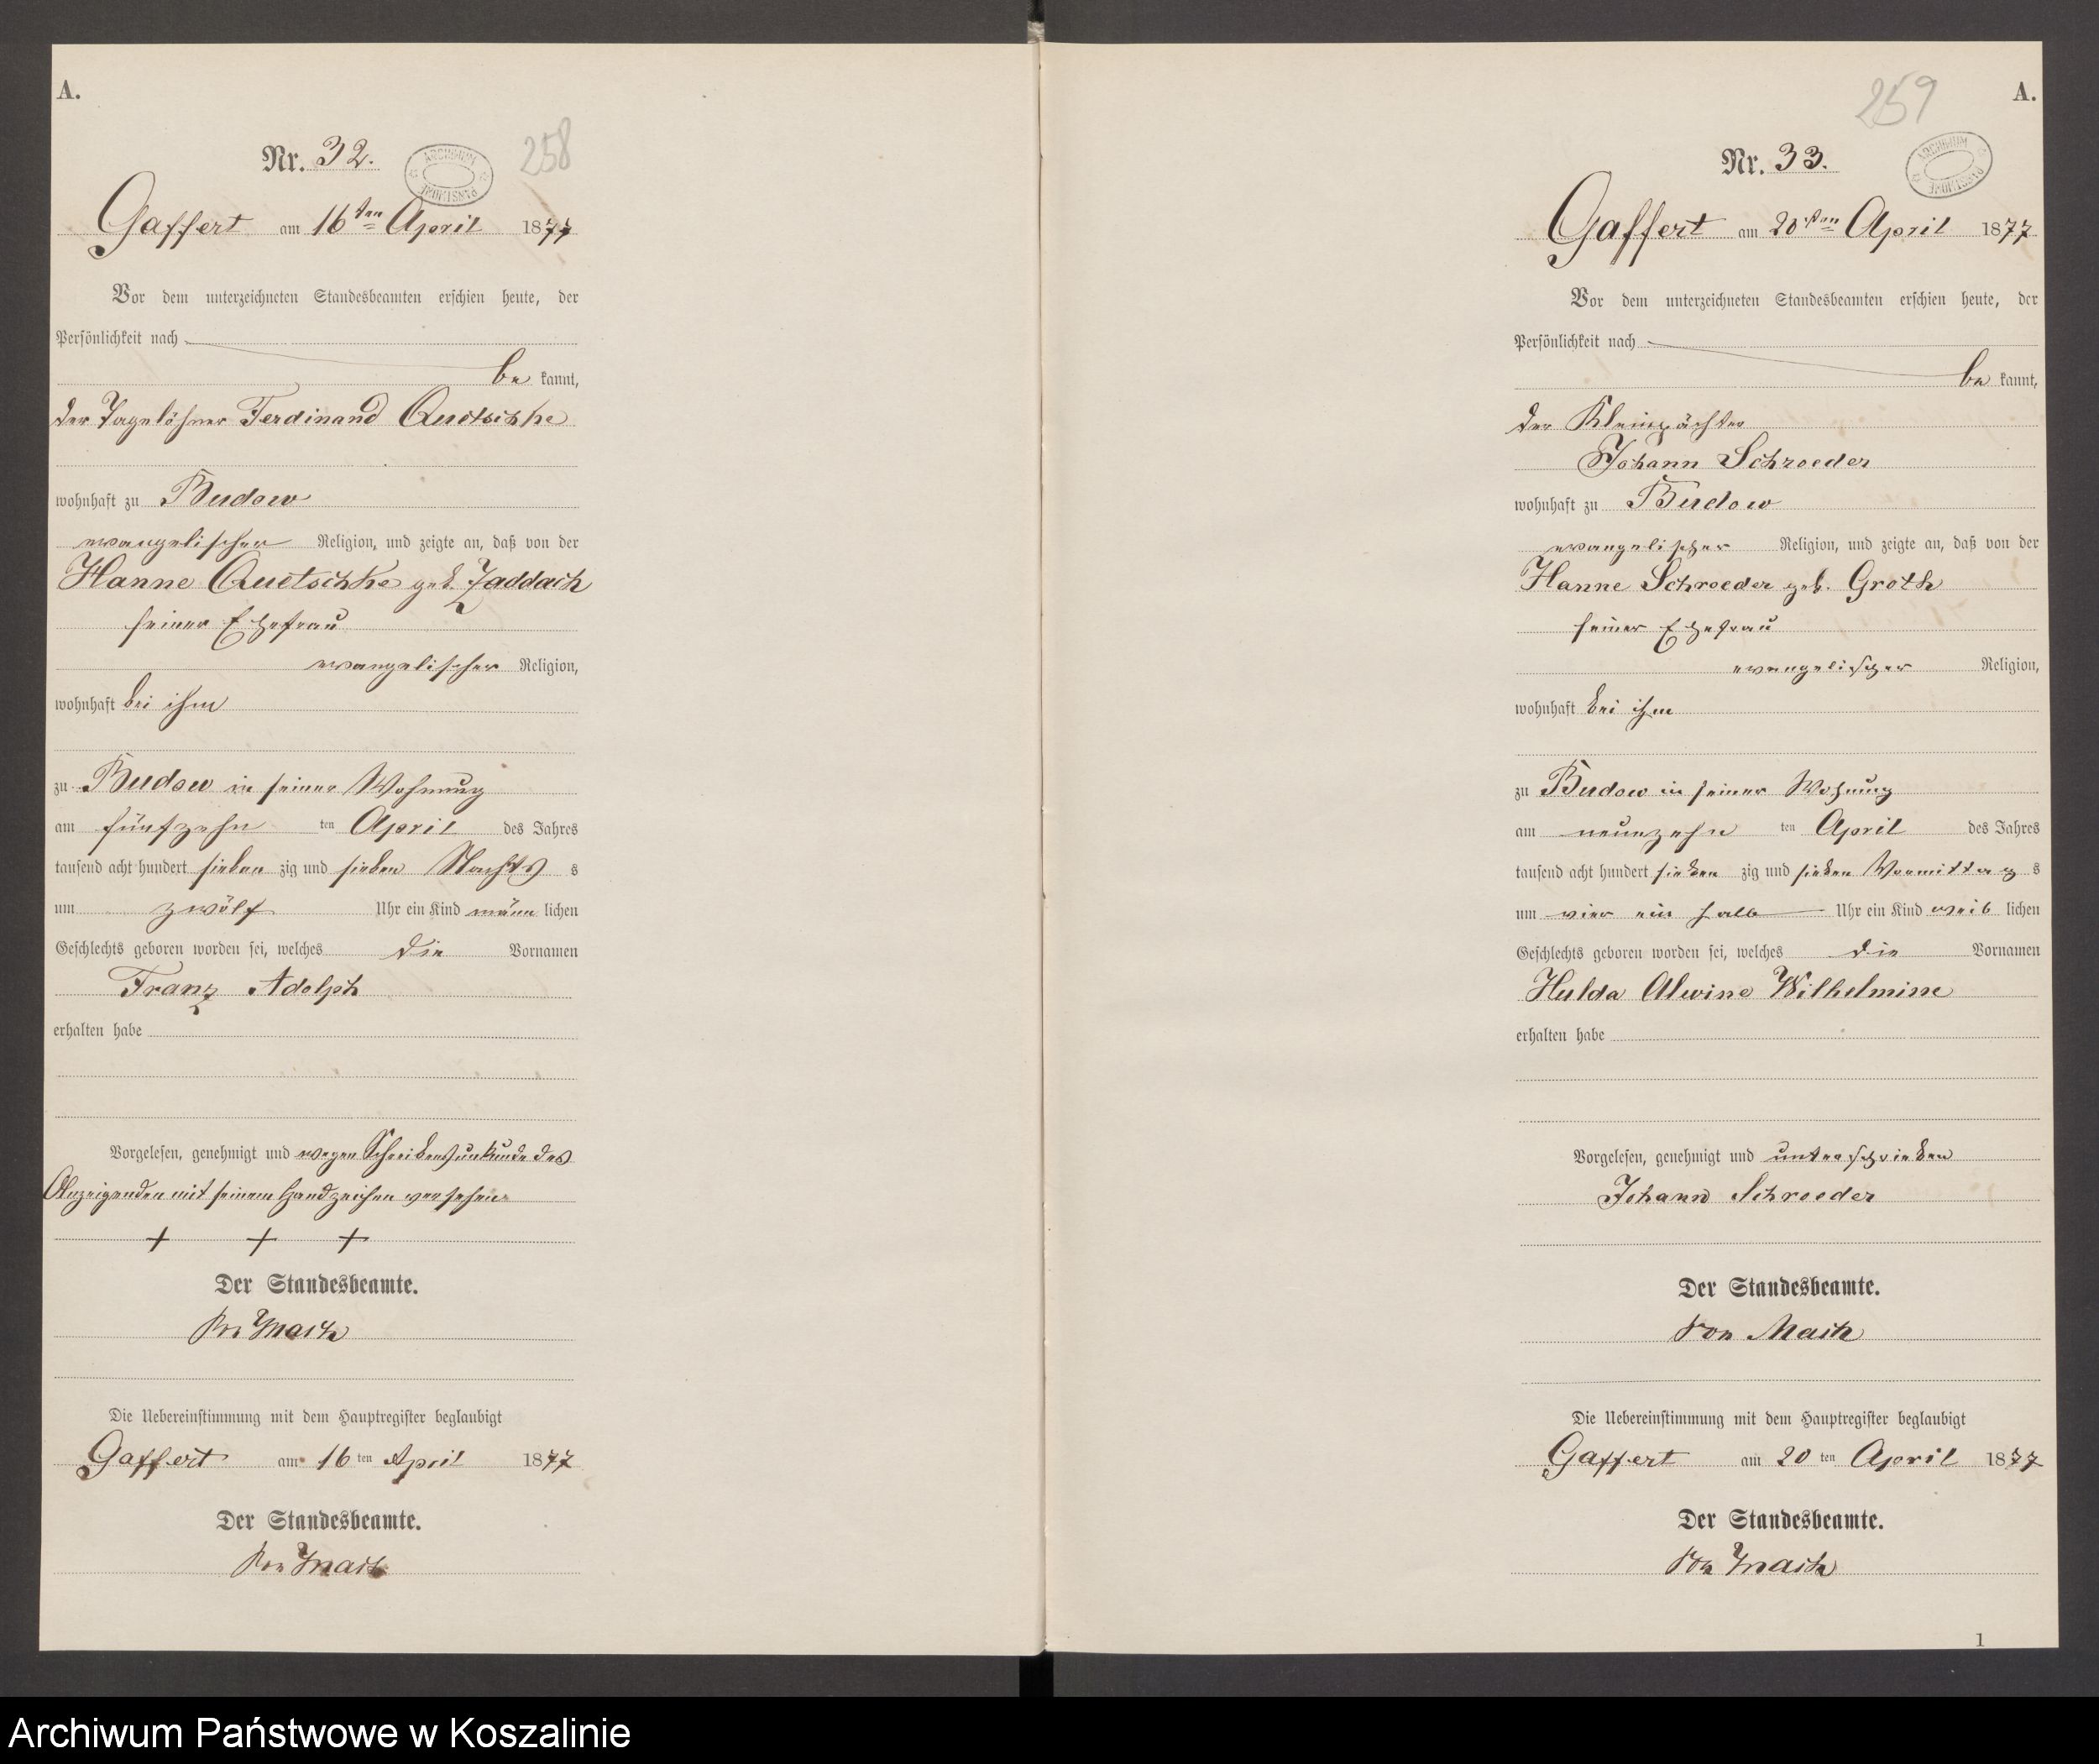 A.
258
Nr. 32.
ARCHIWUM PAŃSTWOWE
Gaffert am 16ten April 1877
Vor dem unterzeichneten Standesbeamten erschien heute, der
Persönlichkeit nach
be kannt,
der Tagelöhner Ferdinand Quetschke
wohnhaft zu Budow
evangelischer Religion, und zeigte an, daß von der
Hanne Quetschke geb. Zaddach
seiner Ehefrau
evangelischer Religion,
wohnhaft bei ihm
zu Budow in seiner Wohnung
am fünfzehn ten April des Jahres
tausend acht hundert sieben zig und sieben Nachts s
um zwölf Uhr ein Kind männ lichen
Geschlechts geboren worden sei, welches die Vornamen
Franz Adolph
erhalten habe
Vorgelesen, genehmigt und wegen Schreibensunkunde des
Anzeigenden mit seinem Handzeichen versehen.
+ + +
Der Standesbeamte.
von Mach
Die Uebereinstimmung mit dem Hauptregister beglaubigt
Gaffert am 16 ten April 1877
Der Standesbeamte.
von Mach
259
A.
Nr. 33.
ARCHIWUM PAŃSTWOWE
Gaffert am 20sten April 1877
Vor dem unterzeichneten Standesbeamten erschien heute, der
Persönlichkeit nach
be kannt,
der Kleinpächter
Johann Schroeder
wohnhaft zu Budow
evangelischer Religion, und zeigte an, daß von der
Hanne Schroeder geb. Groth
seiner Ehefrau
evangelischer Religion,
wohnhaft bei ihm
zu Budow in seiner Wohnung
am neunzehn ten April des Jahres
tausend acht hundert sieben zig und sieben Vormittag s
um vier ein halb Uhr ein Kind weib lichen
Geschlechts geboren worden sei, welches die Vornamen
Hulda Alwine Wilhelmine
erhalten habe
Vorgelesen, genehmigt und unterschrieben
Johann Schroeder
Der Standesbeamte.
von Mach
Die Uebereinstimmung mit dem Hauptregister beglaubigt
Gaffert am 20 ten April 1877
Der Standesbeamte.
von Mach
1
Archiwum Państwowe w Koszalinie